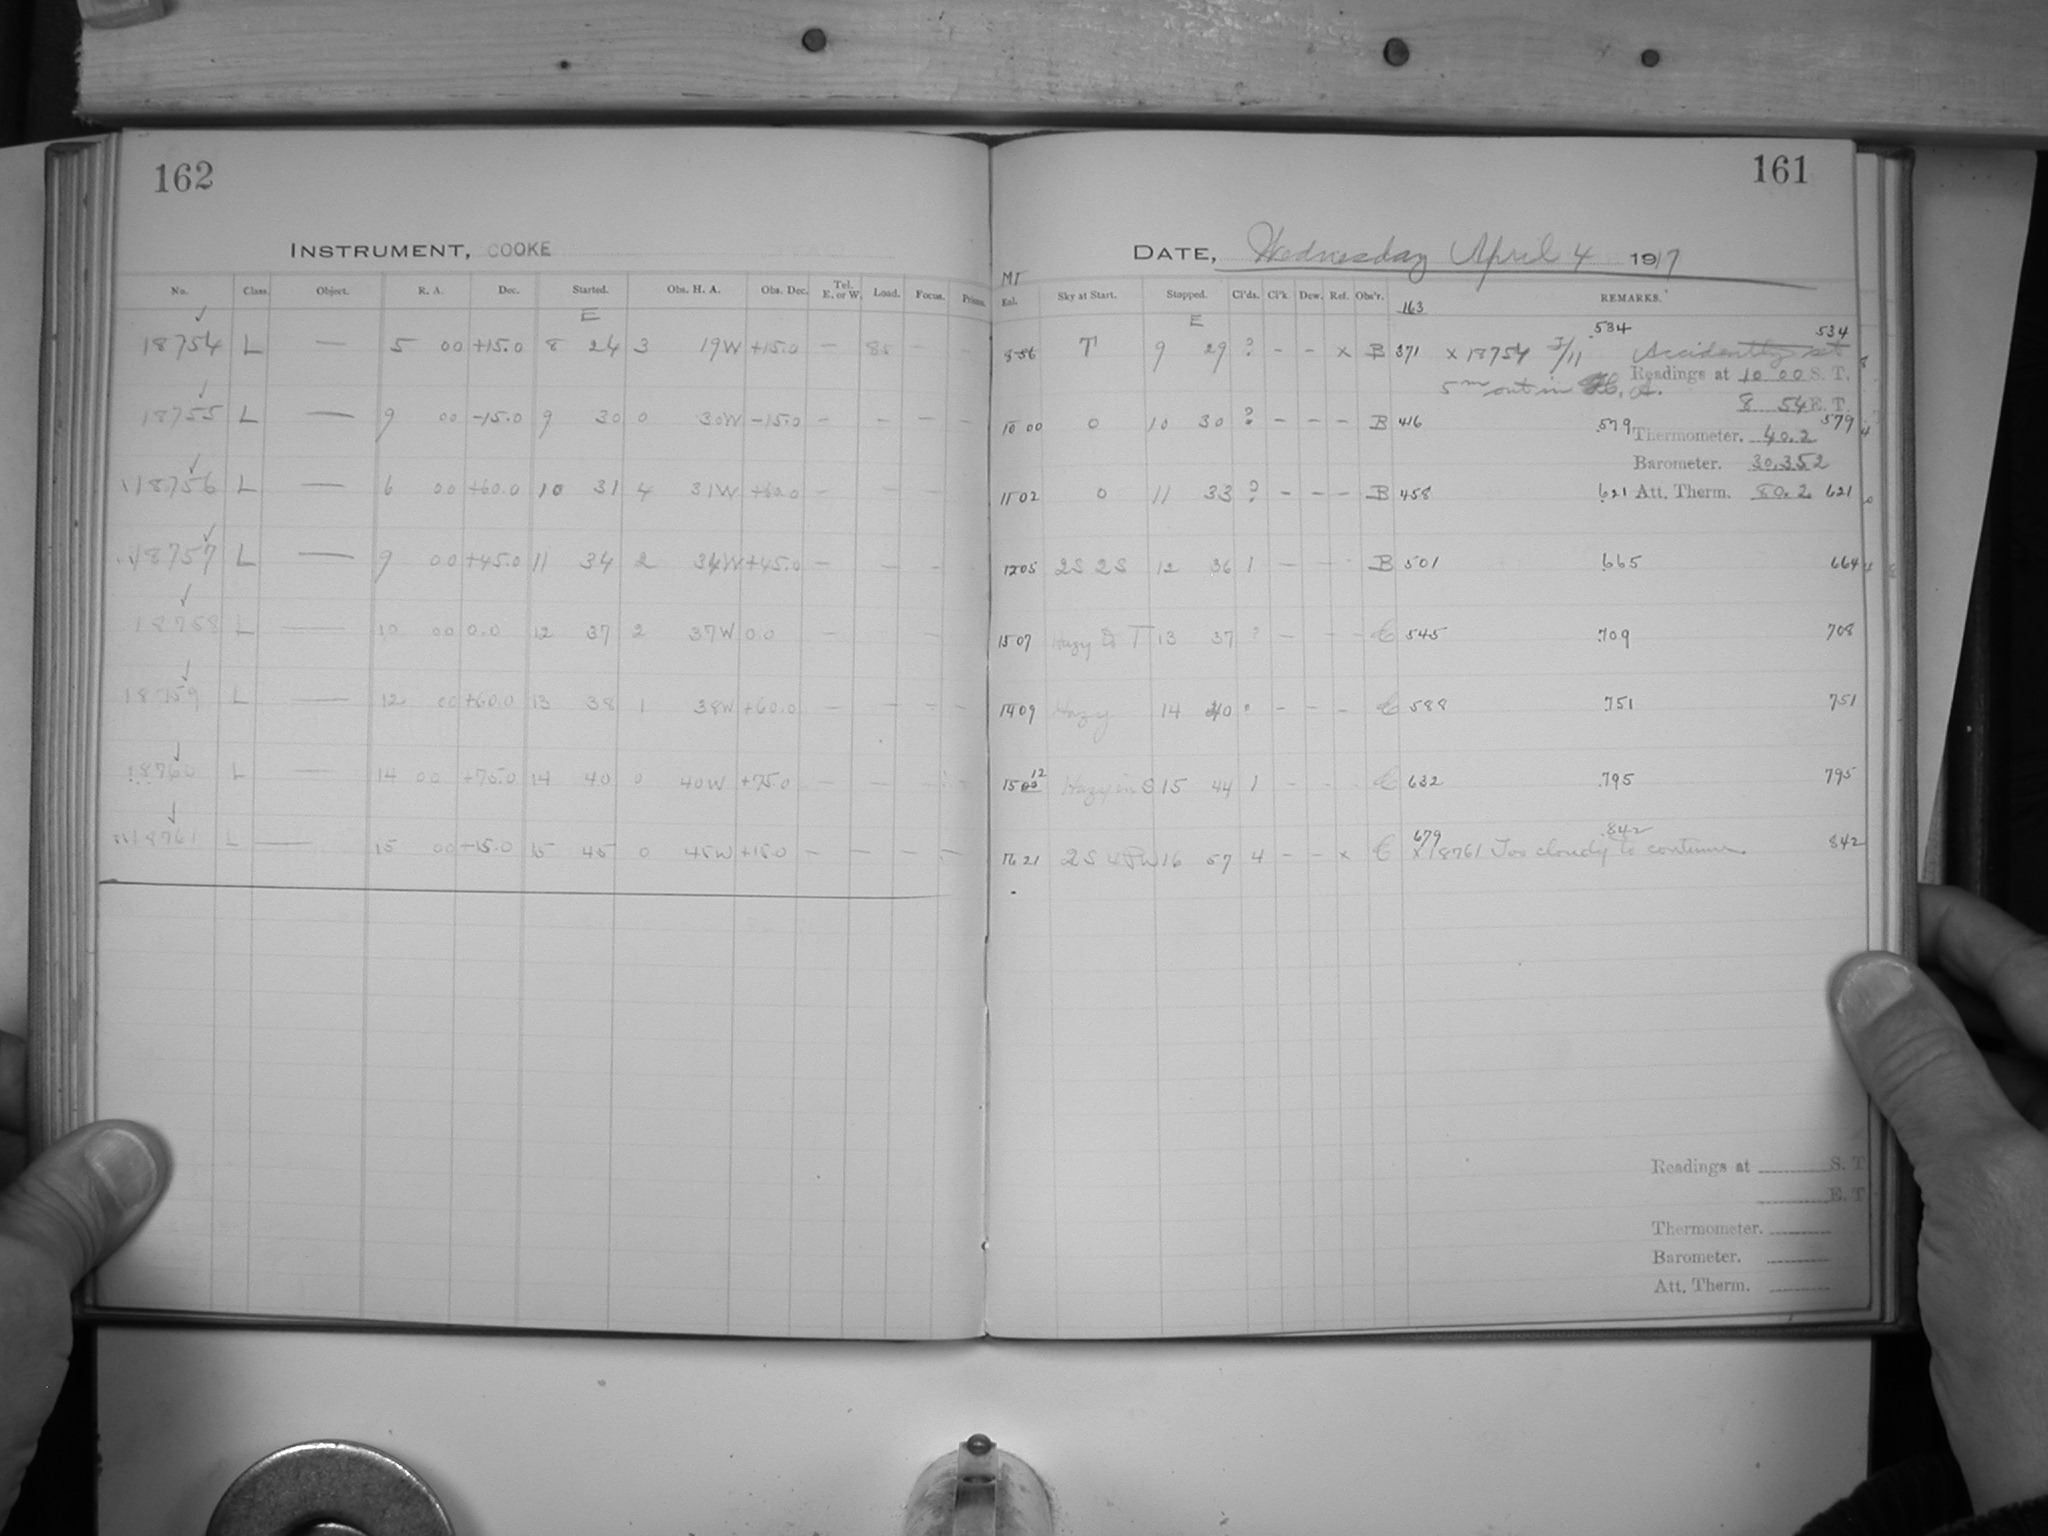 162
INSTRUMENT, COOKE
No. Class. Object. R. A. Dec. Started. Obs. H. A. Obs. Dec. Tel. E. or W. Load. Focus. Prisms.
E
18754 L — 5 00 +15.0 8 24 3 19W +15.0 — 85 — —
18755 L — 9 00 -15.0 9 30 0 30W -15.0 — — — —
18756 L — 6 00 +60.0 10 31 4 31W +60.0 — — —
18757 L — 9 00 +45.0 11 34 2 34W +45.0 — — —
18758 L — 10 00 0.0 12 37 2 37W 0.0 — — —
18759 L — 12 00 +60.0 13 38 1 38W +60.0 — — — —
18760 L — 14 00 +75.0 14 40 0 40W +75.0 — — —
18761 L — 15 00 +15.0 15 45 0 45W +15.0 — — — —
161
DATE, Wednesday April 4 1917
MT
Eql. Sky at Start. Stopped. Cl'ds. Cl'k. Dew. Ref. Obs'r. 163 REMARKS.
E
8 56 T 9 29 ? - - x B 371 x 18754 .534 Accidently set 534
5m out in H. A.
Readings at 10 00 S. T.
8 54 E. T.
10 00 0 10 30 ? - - - B 416 .579 579
Thermometer. 40.2
Barometer. 30.352
11 02 0 11 33 ? - - - B 458 .621 Att. Therm. 80.2 621
12 05 2S 2S 12 36 1 — - B 501 .665 664
13 07 Hazy to T 13 37 ? — - - C 545 .709 708
14 09 Hazy 14 40 ? - - - C 588 .751 751
15 12 Hazy in S 15 44 1 - C 632 .795 795
16 21 16 57 4 - - x C 679 x 18761 Too cloudy to continue. .842 842
Readings at S. T
E. T
Thermometer.
Barometer.
Att. Therm.